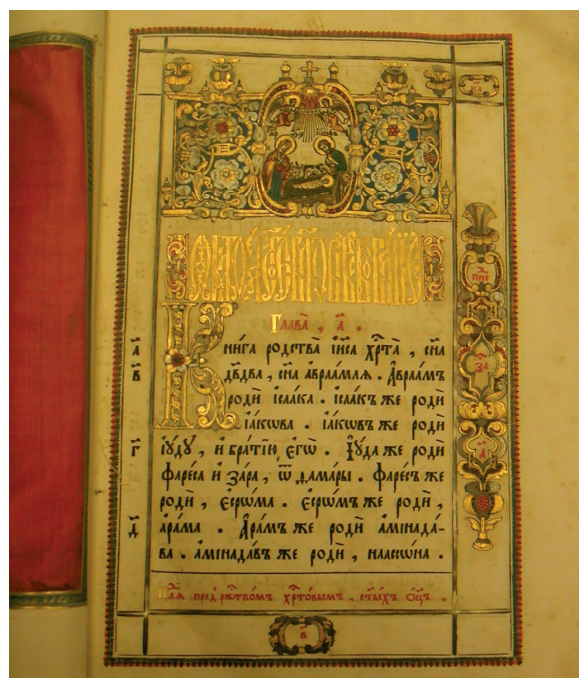 Глава̀, а҃.
Кни́га родства̀ і҆и҃са хр҇та̀, сн҃а
дв҃два, сн҃а а҆враа́млѧ. А҆враа́мъ
родѝ і҆саа́ка. і҆саа́къ же родѝ
і҆а́кѡва. і҆а́кѡвъ же родѝ
і҆ꙋ́дꙋ, и҆ бра́тїю є҆гѡ̀. І҆ꙋ́да же родѝ
фаре́са и҆ за́ра, ѿ ѳама́ры. фаре́съ же
родѝ, є҆срѡ́ма. є҆срѡ́мъ же родѝ,
а҆ра́ма. А҆ра́мъ же родѝ а҆мїнада́-
ва. а҆мїнада́въ же родѝ, наассѡ́на.
а҃
в҃
г҃
д҃
хр҇то́вымъ. ст҃ы́хъ ѻ҆ц҃ъ.